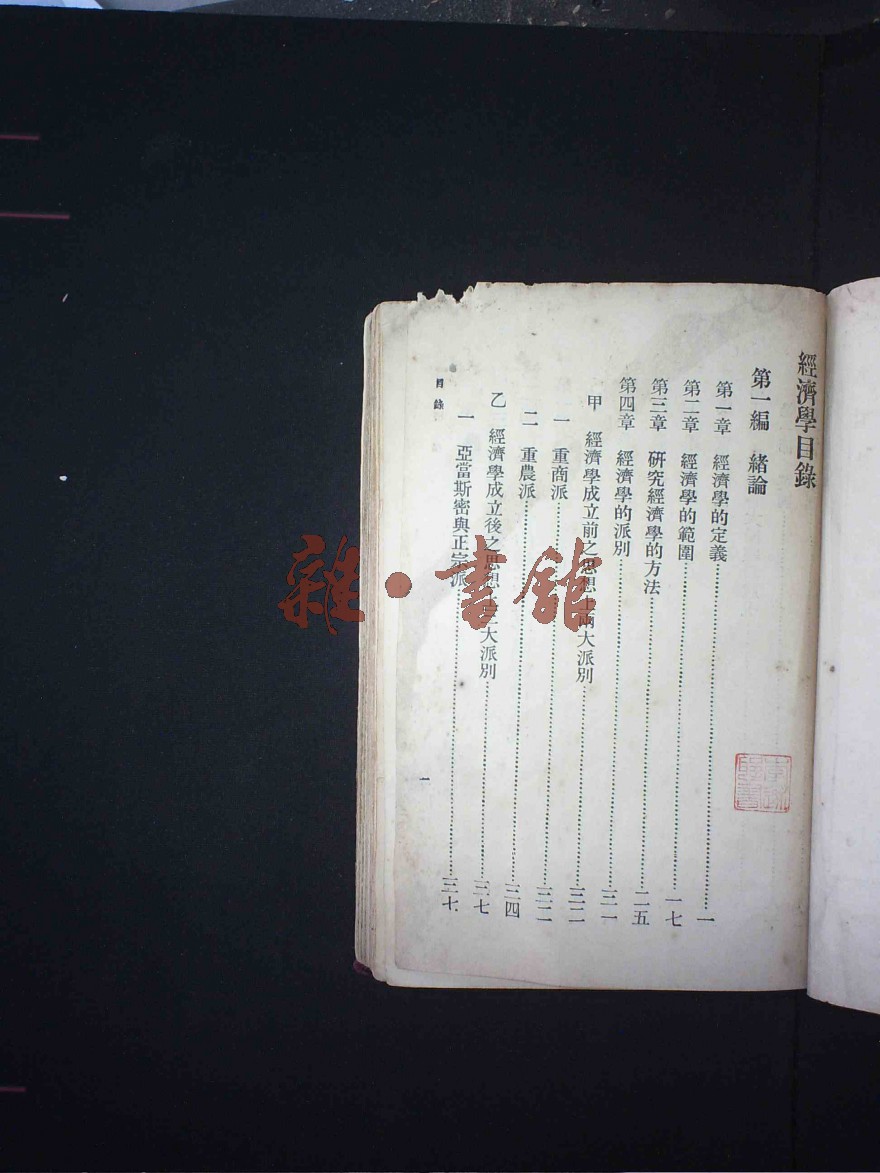 經濟學目錄
第一編 緒論
第一章 經濟學的定義……一
第二章 經濟學的範圍……一七
第三章 研究經濟學的方法……二五
第四章 經濟學的派別……三一
甲 經濟學成立前之思想上兩大派別……三二
一 重商派……三二
二 重農派……三四
乙 經濟學成立後之思想上三大派別……三七
一 亞當斯密與正宗派……三七
目錄
一
雜·書館